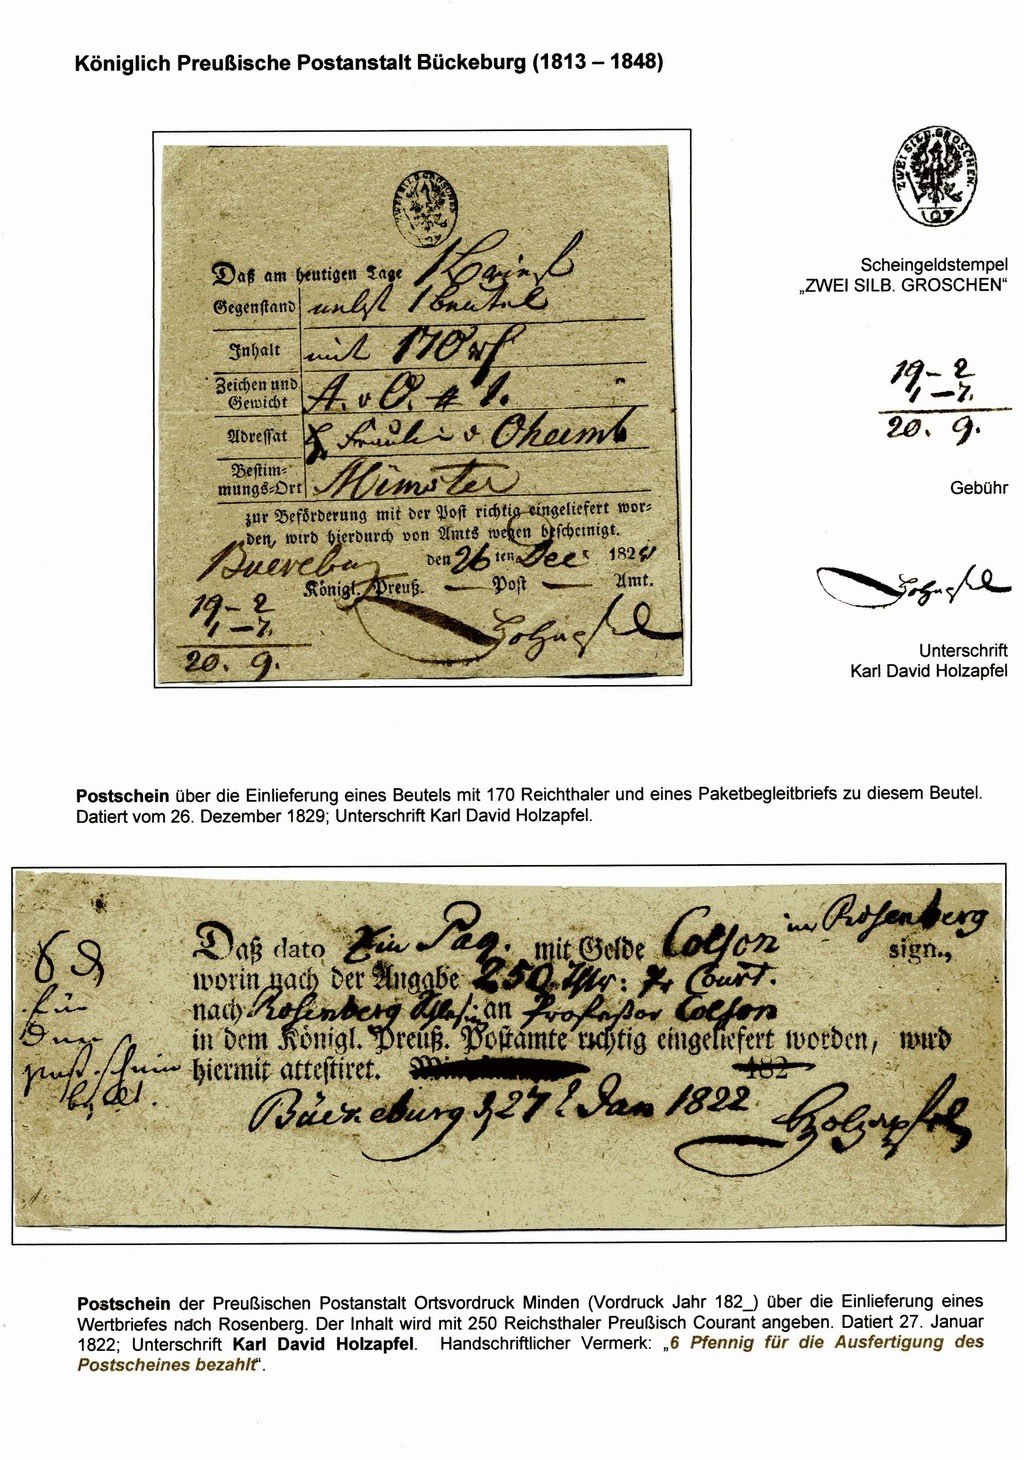 Königlich Preußische Postanstalt Bückeburg (1813 – 1848)
ZWEI SILB. GROSCHEN
Daß am heutigen Tage 1 Brief
Gegenstand nebst 1 beutel
Inhalt mit 170
Zeichen und Gewicht A. v O. # 1.
Adressat Fräulein v Oheimb
Bestim=
mungs=Ort Münster
zur Beförderung mit der Post richtig eingeliefert wor=
den, wird hierdurch von Amts wegen bescheinigt.
den 26 ten Dec 182
Königl. Preuß. — Post — Amt.
Holzapfel
19 – 2
1 – 7.
20. 9.
ZWEI SILB. GROSCHEN.
Scheingeldstempel
„ZWEI SILB. GROSCHEN“
19 – 2
1 – 7.
20. 9.
Gebühr
Holzapfel
Unterschrift
Karl David Holzapfel
Postschein über die Einlieferung eines Beutels mit 170 Reichthaler und eines Paketbegleitbriefs zu diesem Beutel.
Datiert vom 26. Dezember 1829; Unterschrift Karl David Holzapfel.
6 d
für
den
postschein
bezalt.
Daß dato Ein Paq. mit Gelde Colson in Rosenberg sign.,
worin nach der Angabe 250 Pr Court.
nach Rosenberg an Professor Colson
in dem Königl. Preuß. Postamte richtig eingeliefert worden, wird
hiermit attestiret. 182
Bückeburg d 27 Jan 1822
Holzapfel
Postschein der Preußischen Postanstalt Ortsvordruck Minden (Vordruck Jahr 182_) über die Einlieferung eines
Wertbriefes nach Rosenberg. Der Inhalt wird mit 250 Reichsthaler Preußisch Courant angeben. Datiert 27. Januar
1822; Unterschrift Karl David Holzapfel. Handschriftlicher Vermerk: „6 Pfennig für die Ausfertigung des
Postscheines bezahlt“.